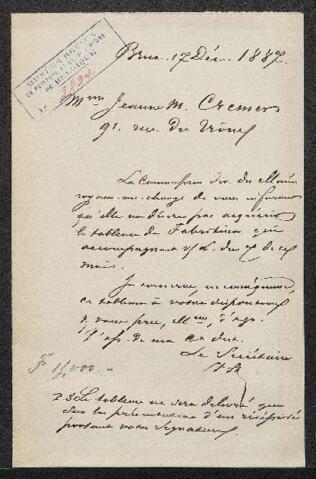 MUSÉES ROYAUX
DE PEINTURE ET DE SCULPTURE
DE BELGIQUE
No
Brux. 17 Déc. 1887.
Mme Jeanne M. Cremers
91. rue du Trône
La Commission dir. des Musées
royaux me charge de vous informer
qu'elle ne désire pas acquérir
le tableau de Fabritius qui
accompagnait v/ l. du 7 de ce
mois.
Je conserve, en conséquence,
ce tableau à votre disposition
& vous prie, Mme, d'agr.
l'ass. de ma c. dist.
Le Secrétaire
F 15,000.-
Le tableau ne sera délivré que
sur la présentation d'un récépissé
portant votre signature.